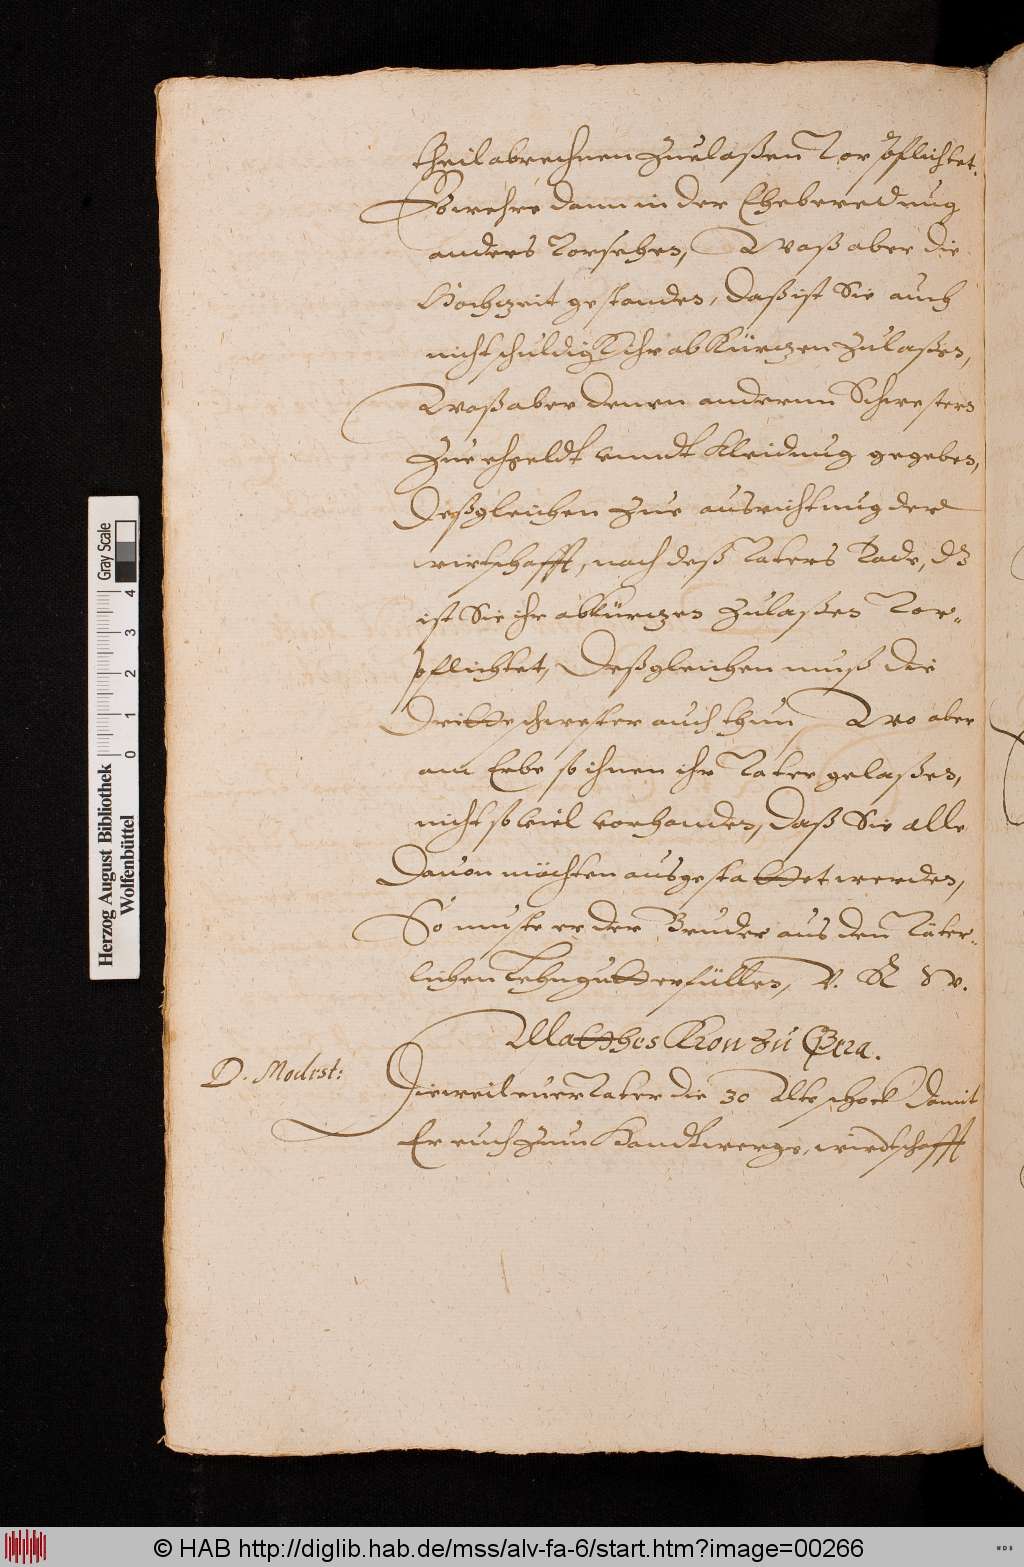 theil abrechnen zuelaßen Vorpflichtet.
Es wehre dann in der Eheberednug
anders Vorsehen, Waß aber die
Hochzeit gestanden, daß ist Sie auch
nicht schuldig Ihr abkürtzen zulaßen,
Waß aber denen andernn Schwestern
Zue ehgeldt vnndt Kleidnug gegeben,
Deßgleichen zue ausrichtnug der
wirtschafft, nach deß Vaters Tade, dz
ist Sie ihr abkürtzen zulaßen Vor-
pflichtet, Deßgleichen muß die
dritte schwester auch thun, Wo aber
am Erbe so ihnen ihr Vater gelaßen,
nicht so viel vorhanden, daß Sie alle
dauon möchten ausgestattet werden,
So muste er der Bruder aus den Väter-
lichen Lehngutt erfüllen, V. R W.
Matthes Kron zu Gera.
D. Modest:
Dieweil euer Vater die 30 Alte schock damit
Er euch zum Handtwergs, wirdtschafft
Herzog August Bibliothek
Wolfenbüttel
0 1 2 3 4
Gray Scale
© HAB http://diglib.hab.de/mss/alv-fa-6/start.htm?image=00266